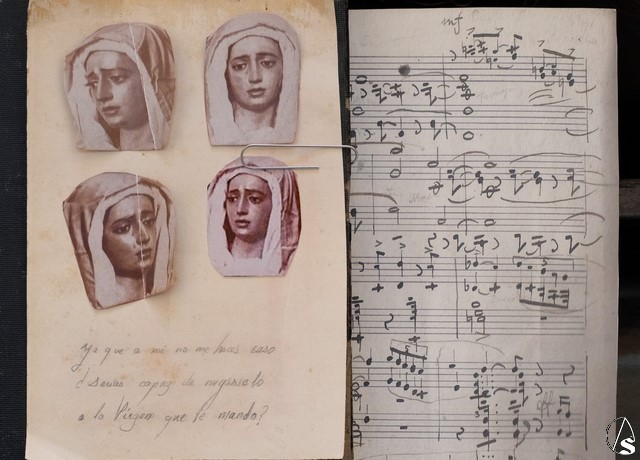 mf
Ya que a mi no me haces caso
¿Serías capaz de negárselo
a la Virgen que te mando?
ff